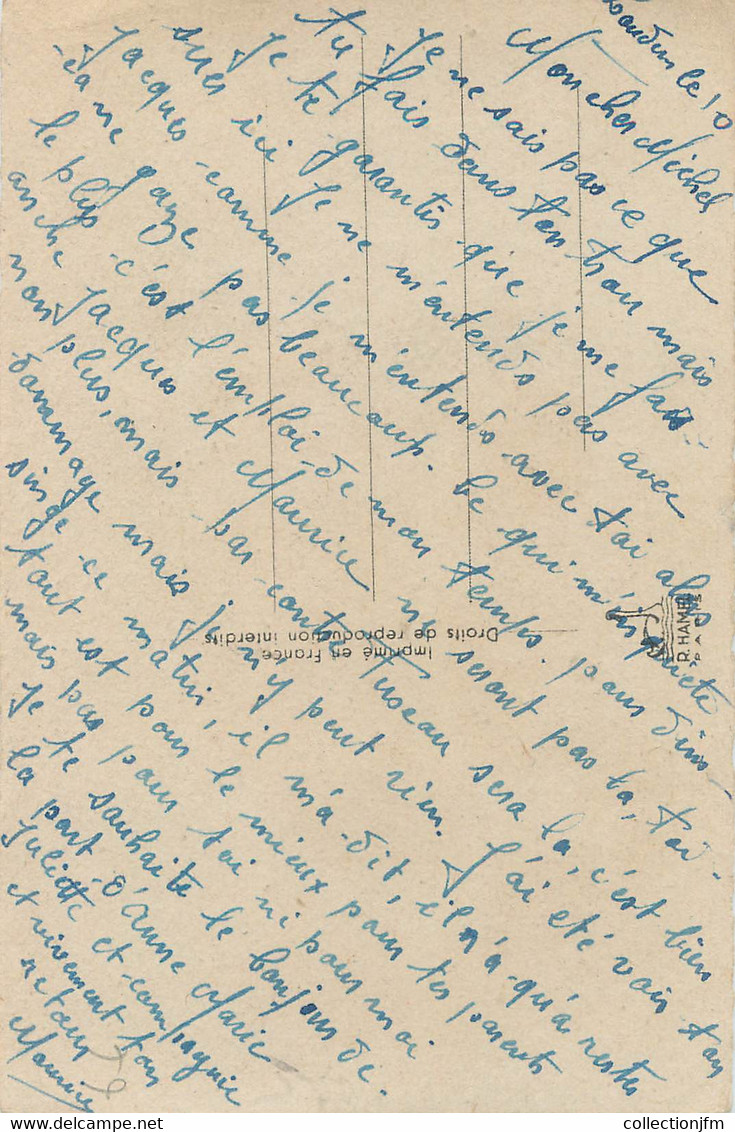 Loudun le 10
Mon cher Michel
Je ne sais pas ce que
tu fais dans ton trou mais
Je te garantis que je me fais
suer ici je ne m'entends pas avec
Jacques comme je m'entends avec toi alors
ça ne gaze pas beaucoup. Ce qui m'inquiète
le plus c'est l'emploi de mon temps. pour dim-
anche Jacques et Maurice ne seront pas là, toi
non plus, mais par contre Tuseau sera là, c'est bien
dommage mais je n'y peut rien. J'ai été voir ton
singe ce matin, il m'a dit, il n'a qu'à rester
tout est pour le mieux pour tes parents
mais pas pour toi ni pour moi
Je te souhaite le bonjour de
la part d'Anne Marie
Juliette et compagnie
et vivement ton
retour
Maurice
Imprimé en France
Droits de reproduction interdits
R. HAMEL
PARIS
collectionjfm